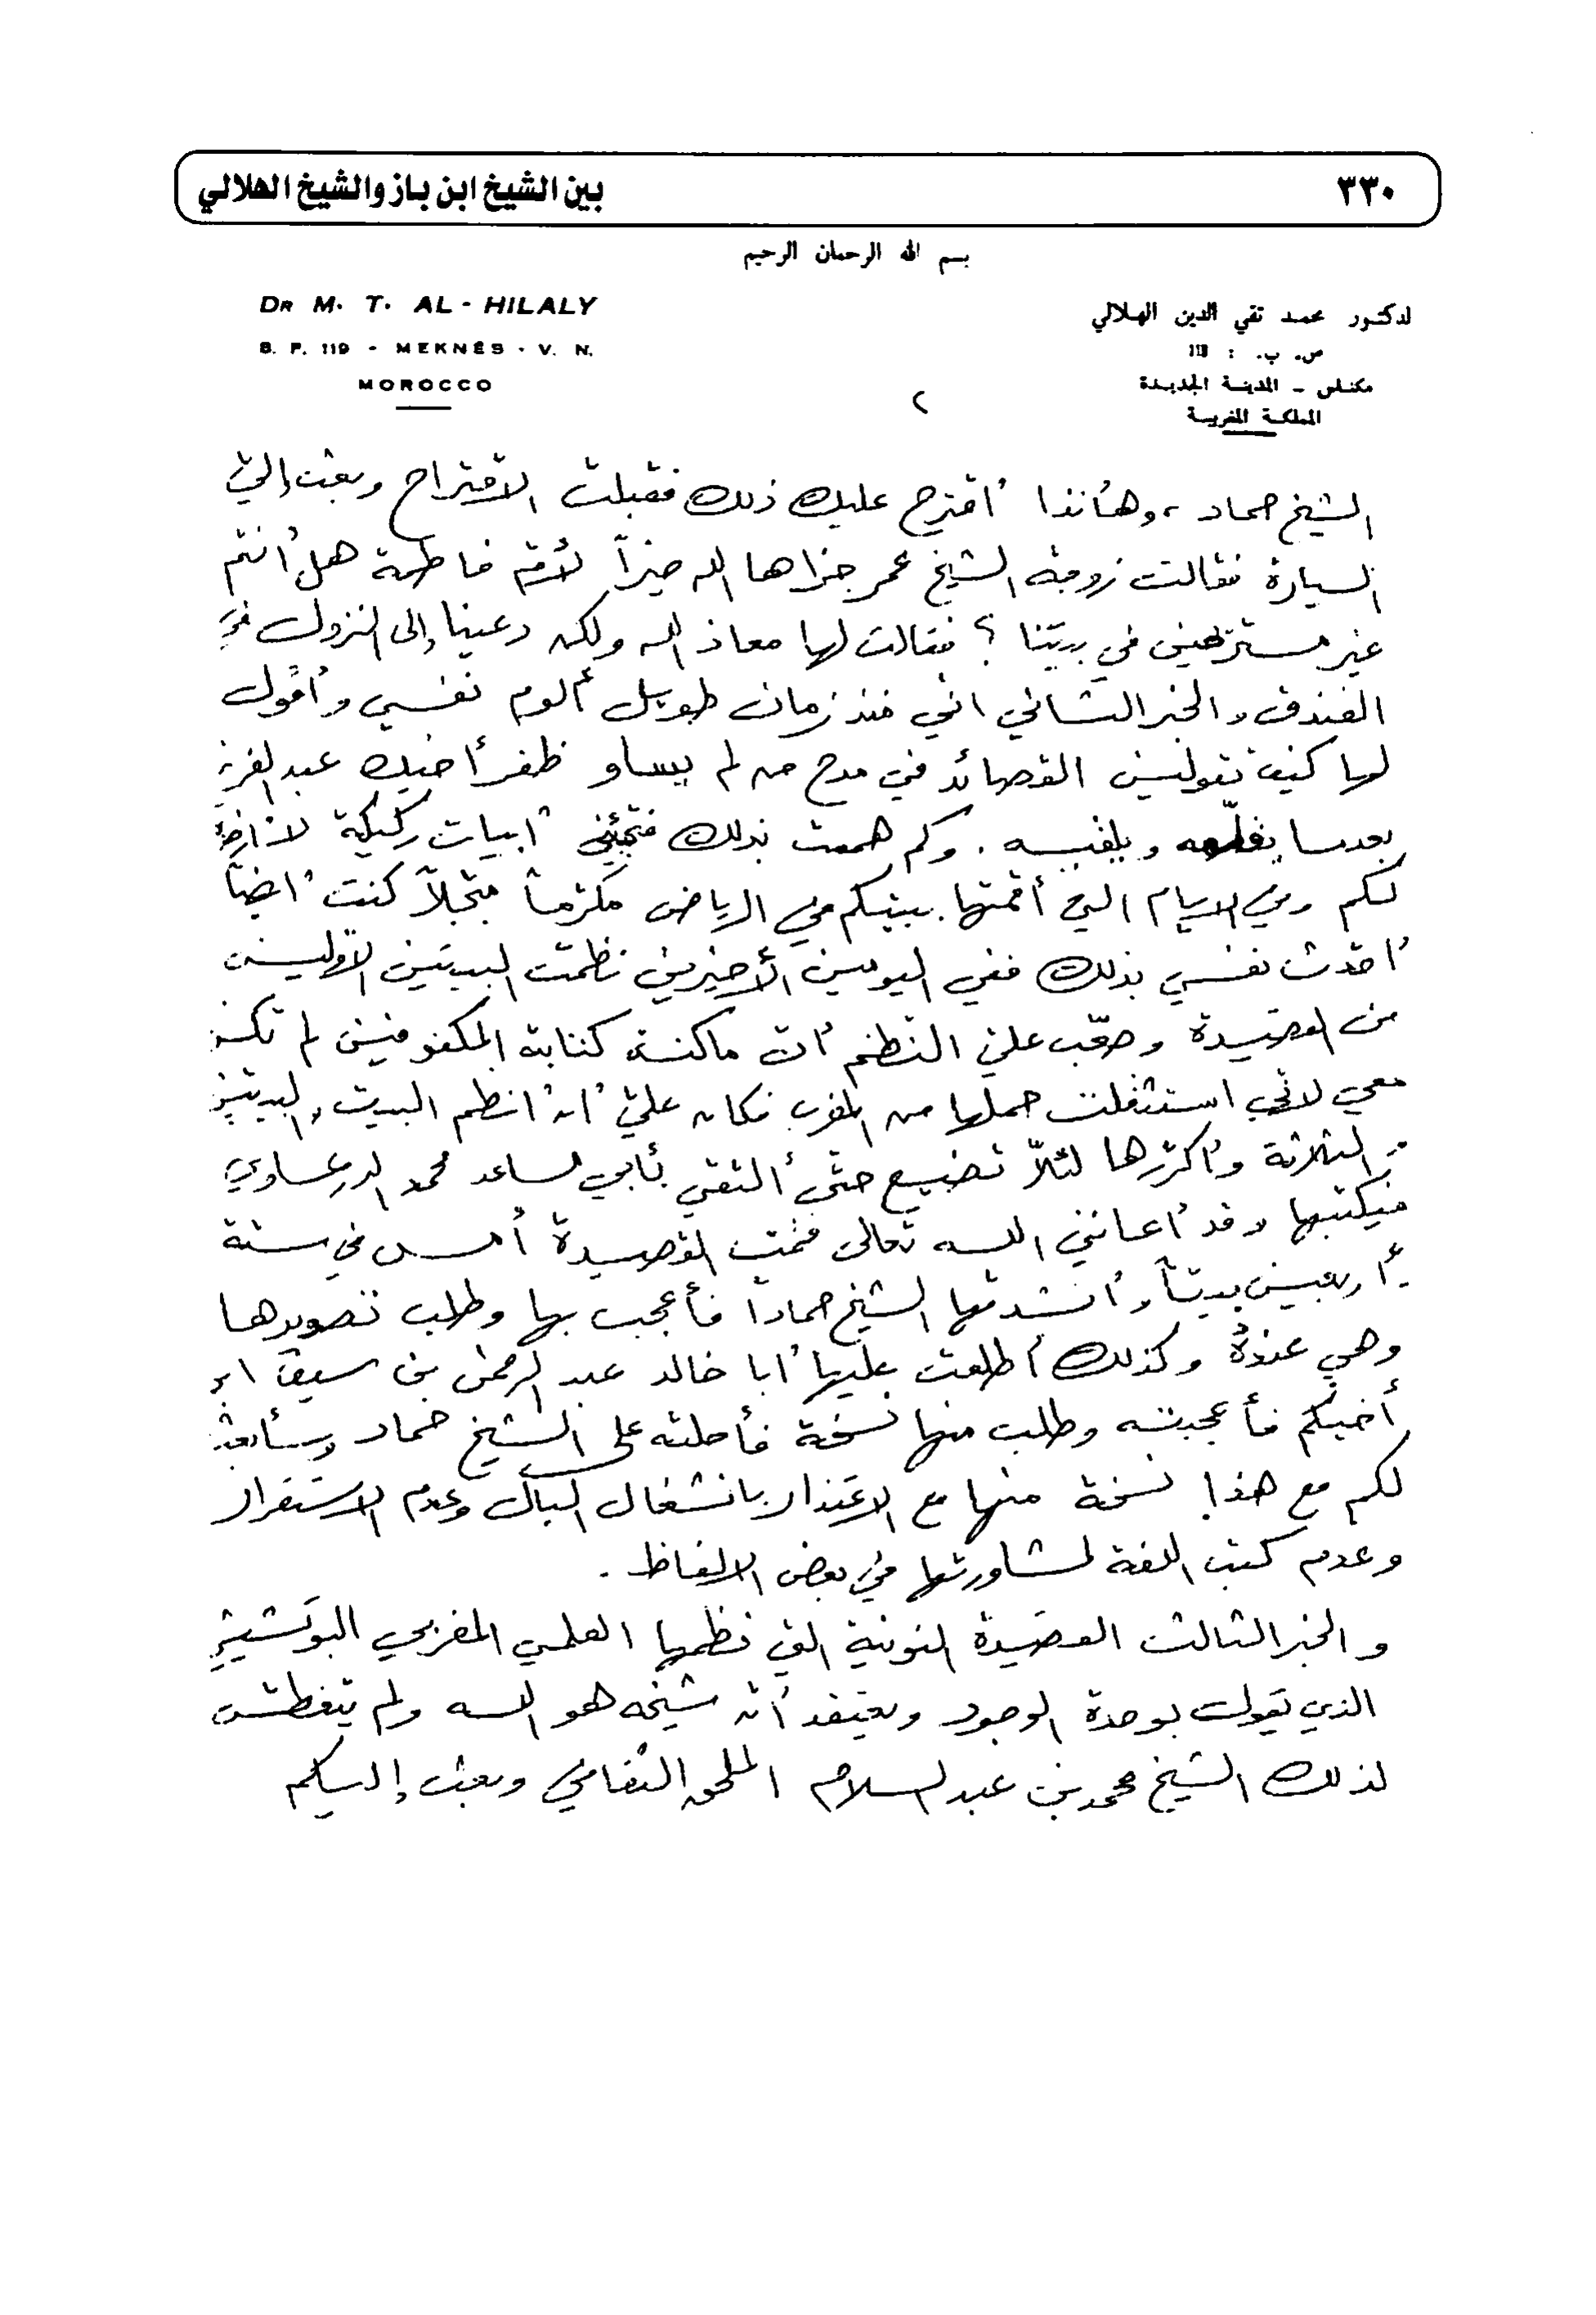 ٣٣٠
بين الشيخ ابن باز والشيخ الهلالي
بسم الله الرحمان الرحيم
DR M. T. AL - HILALY
B. P. 119 - MEKNÈS - V. N.
MOROCCO
لدكتور محمد تقي الدين الهلالي
ص. ب. : 119
مكناس - المدينة الجديدة
المملكة المغربية
٢
الشيخ حماد، وهأنذا أقترح عليك ذلك فقبلت الاقتراح وبعث إليّ
السيارة فقالت زوجة الشيخ عمر جزاها الله خيراً لأم فاطمة هل أنتم
غير مستريحين في بيتنا؟ فقالت لها معاذ الله ولكن دعينا إلى النزول في
الفندق والخبر الثاني اني منذ زمان طويل ألوم نفسي وأقول
لها كيف تقولين القصائد في مدح من لم يساو ظفر أخيك عبد العزيز
وكم هممت بذلك فتجيئني أبيات ركيكة لا
لكم وفي الايام التي أقمتها ببيتكم في الرياض مكرّماً مبجّلاً كنت أيضاً
أحدث نفسي بذلك ففي اليومين الأخيرين نظمت البيتين الأولين
من القصيدة وصعّب عليّ النظم أن ماكنة كتابة المكفوفين لم تكن
معي لأني استثقلت حملها من المغرب فكان عليّ أن أنظم البيت والبيتين
والثلاثة وأكررها لئلاّ تضيع حتى ألتقي بأبي مساعد محمد الدرعساوي
فيكتبها وقد أعانني الله تعالى فتمت القصيدة أمس في ستة
وأربعين بيتاً وأنشدتها الشيخ حماداً فأعجب بها وطلب تصويرها
وهي عنده وكذلك أطلعت عليها أبا خالد عبد الرحمن بن سيف ابن
أخيكم فأعجبته وطلب منها نسخة فأحلته على الشيخ حماد وسأبعث
لكم مع هذا نسخة منها مع الاعتذار بانشغال البال وعدم الاستقرار
وعدم كتب اللغة لمشاورتها في بعض الالفاظ.
والخبر الثالث القصيدة النونية التي نظمها العلمي المغربي البوتشيشي
الذي يقول بوحدة الوجود ويعتقد أن شيخه هو الله ولم يتفطن
لذلك الشيخ محمد بن عبد السلام الملحق الثقافي وبعث إليكم